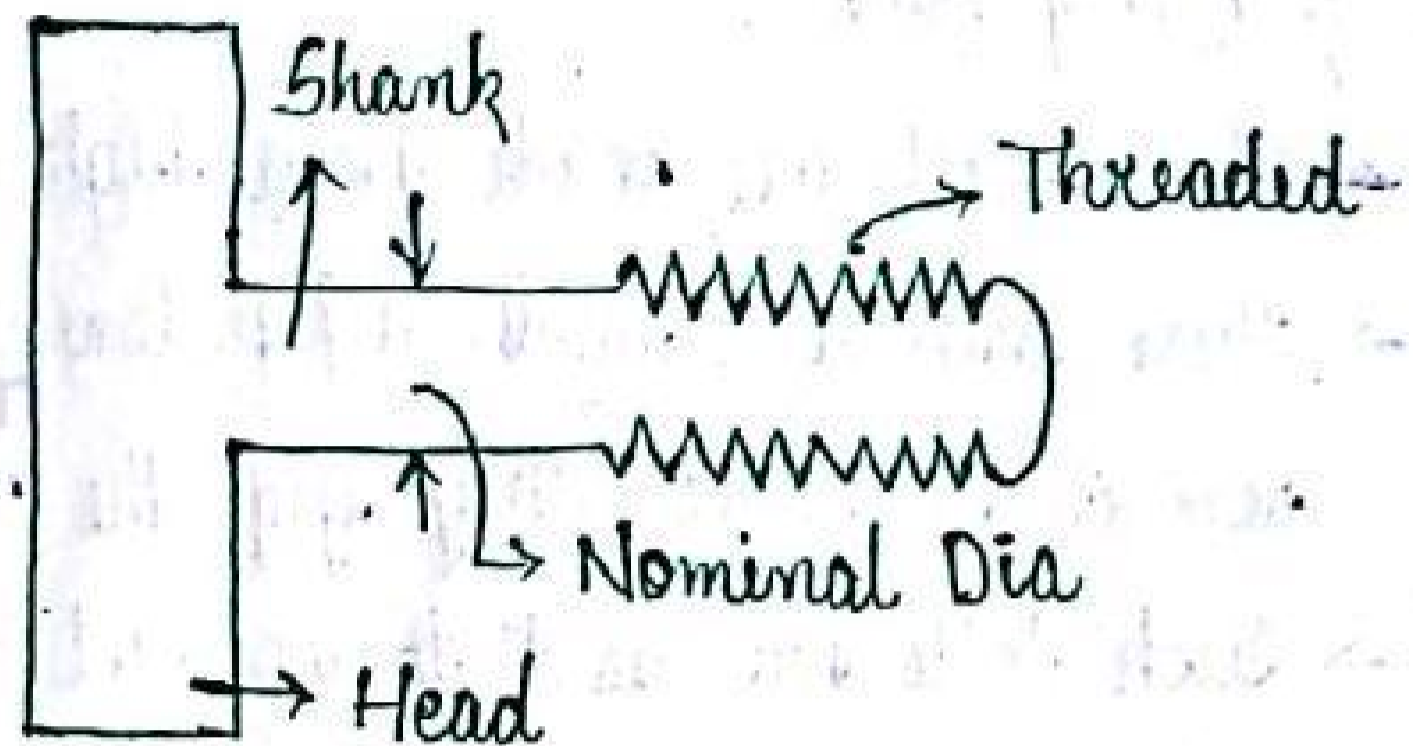 Shank
Threaded
Nominal Dia
Head